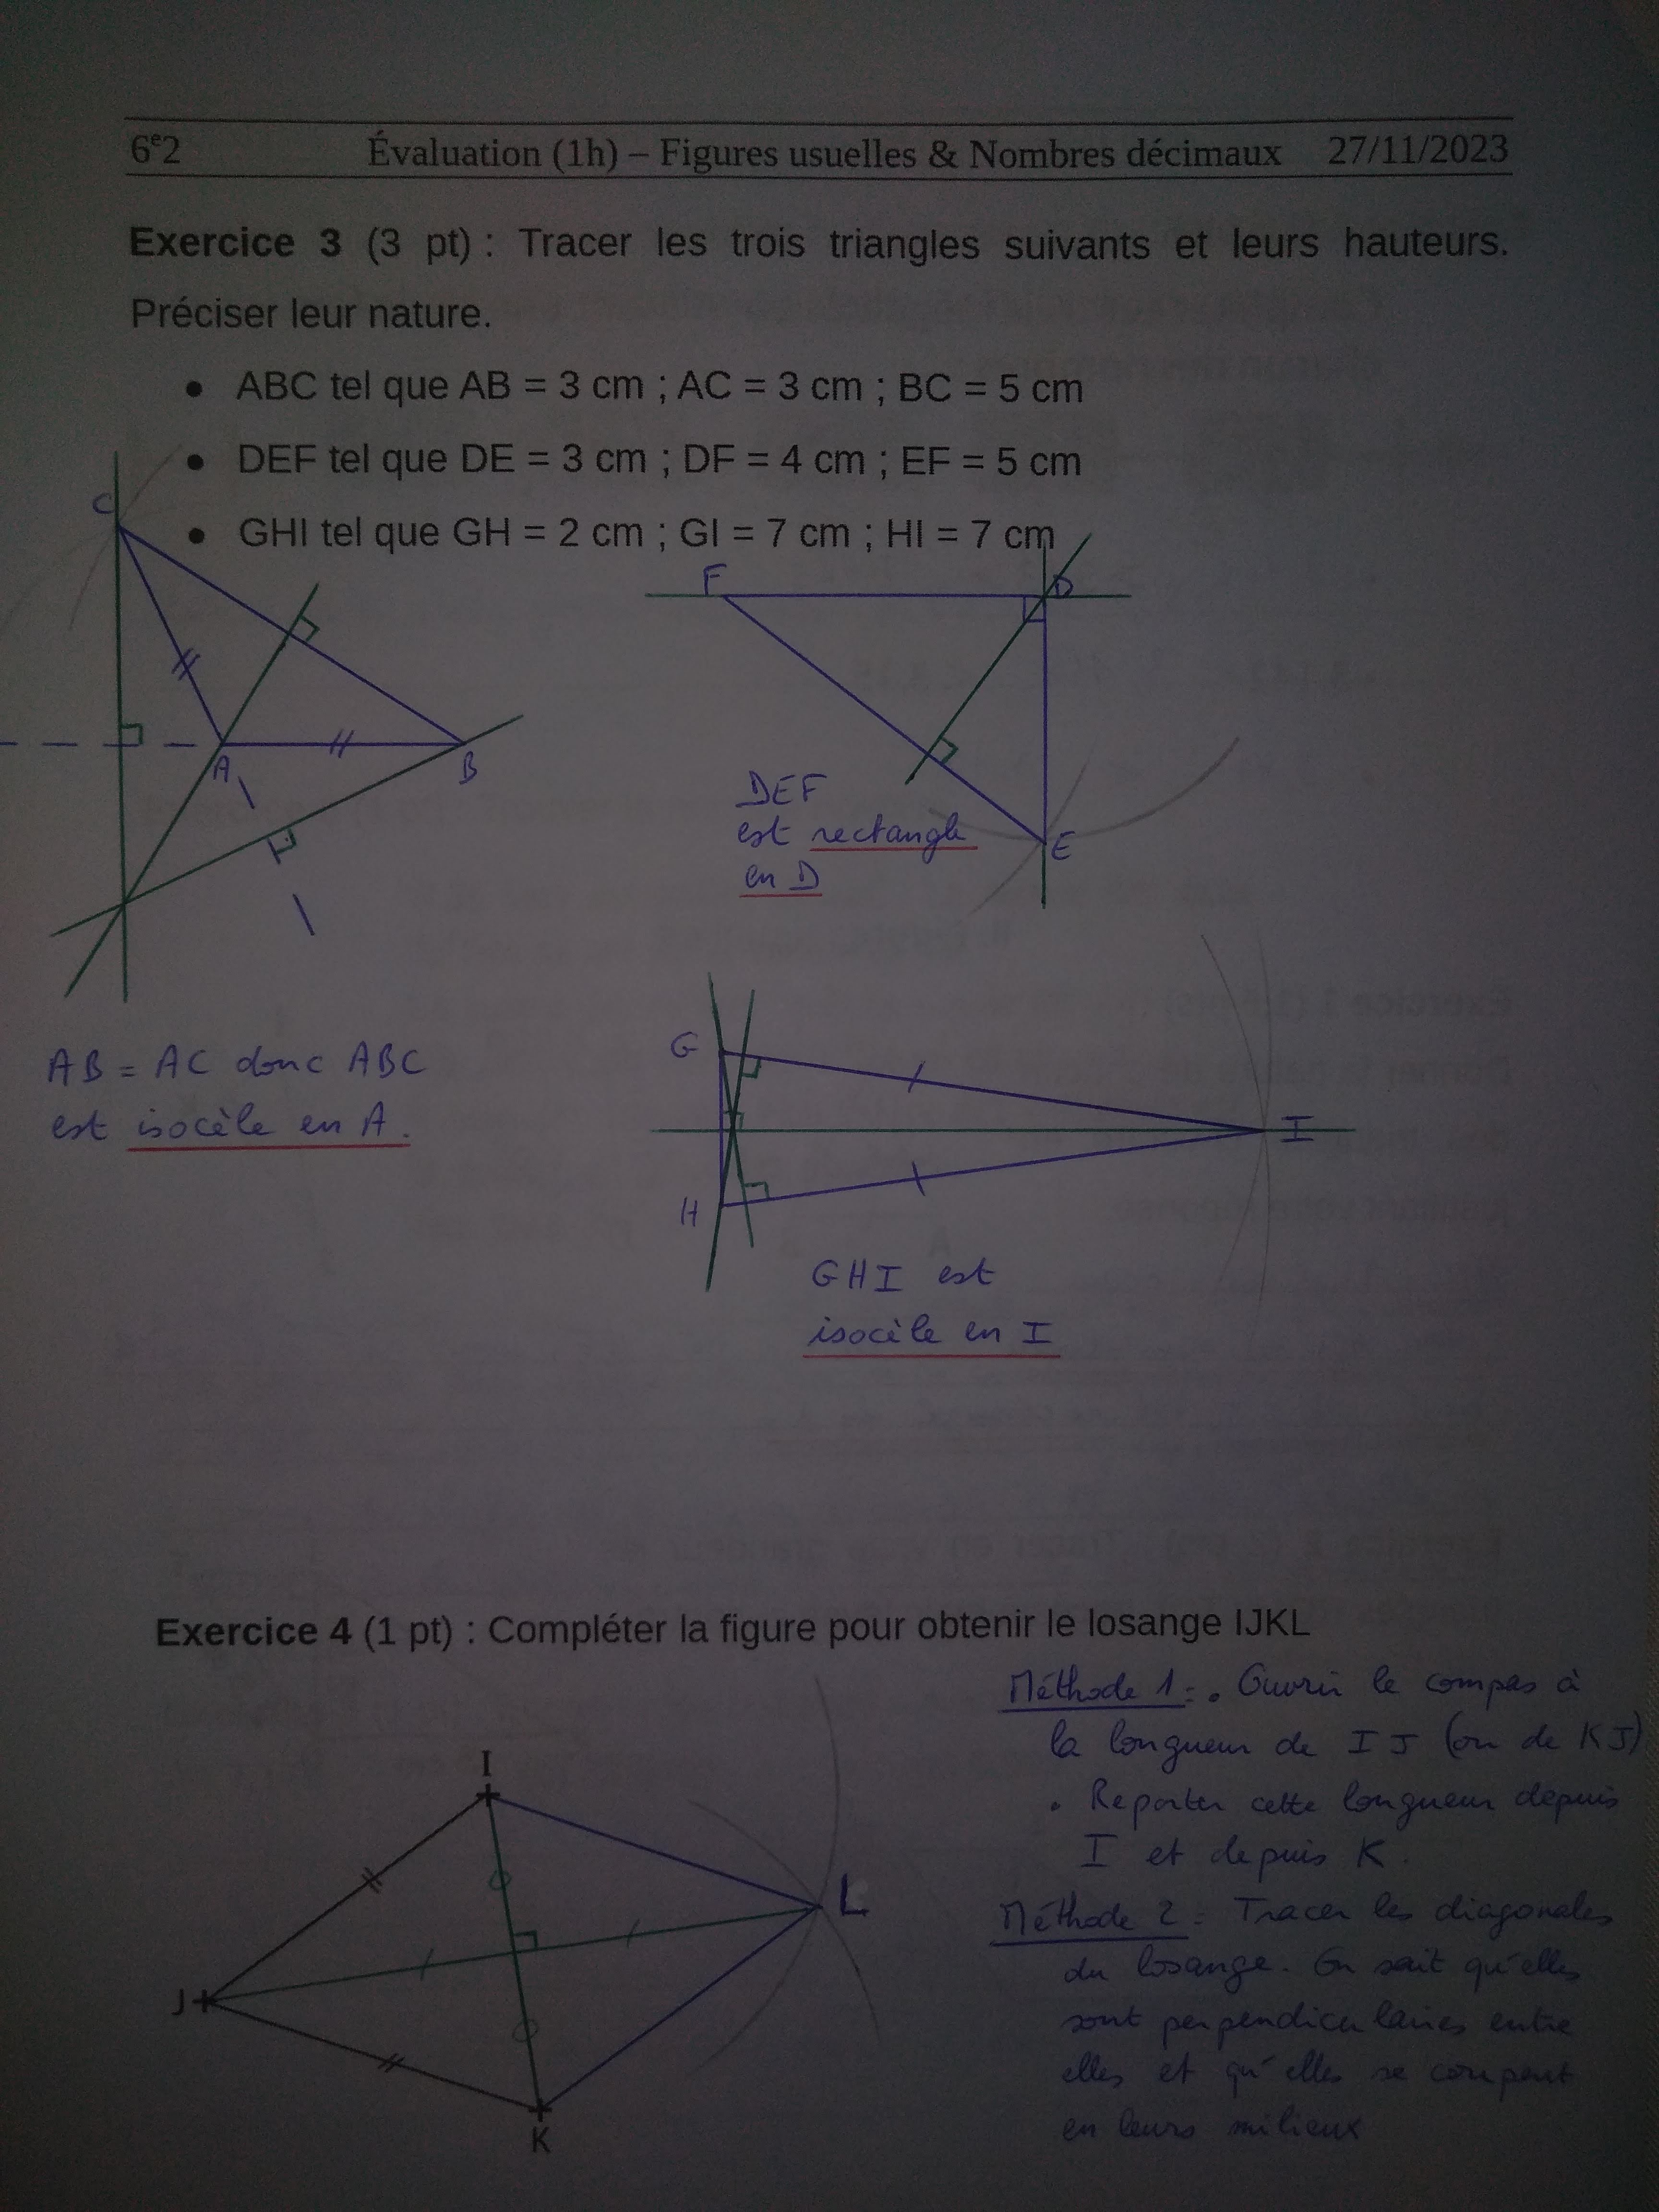 6e2 Évaluation (1h) – Figures usuelles & Nombres décimaux 27/11/2023
Exercice 3 (3 pt) : Tracer les trois triangles suivants et leurs hauteurs.
Préciser leur nature.
• ABC tel que AB = 3 cm ; AC = 3 cm ; BC = 5 cm
• DEF tel que DE = 3 cm ; DF = 4 cm ; EF = 5 cm
• GHI tel que GH = 2 cm ; GI = 7 cm ; HI = 7 cm
C
A
B
F
D
E
DEF
est rectangle
en D
AB = AC donc ABC
est isocèle en A.
G
H
I
GHI est
isocèle en I
Exercice 4 (1 pt) : Compléter la figure pour obtenir le losange IJKL
I
J
K
L
Méthode 1 : • Ouvrir le compas à
la longueur de IJ (ou de KJ)
• Reporter cette longueur depuis
I et depuis K.
Méthode 2 : Tracer les diagonales
du losange. On sait qu'elles
sont perpendiculaires entre
elles et qu'elles se coupent
en leurs milieux